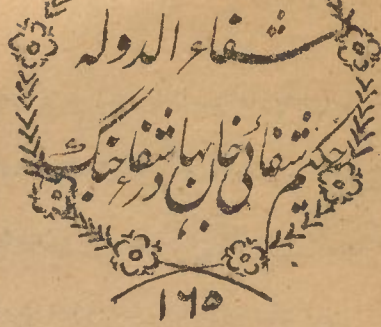 شفاء الدولہ
حکیم شفائی خان بہادر شفاء جنگ
۱۶۵